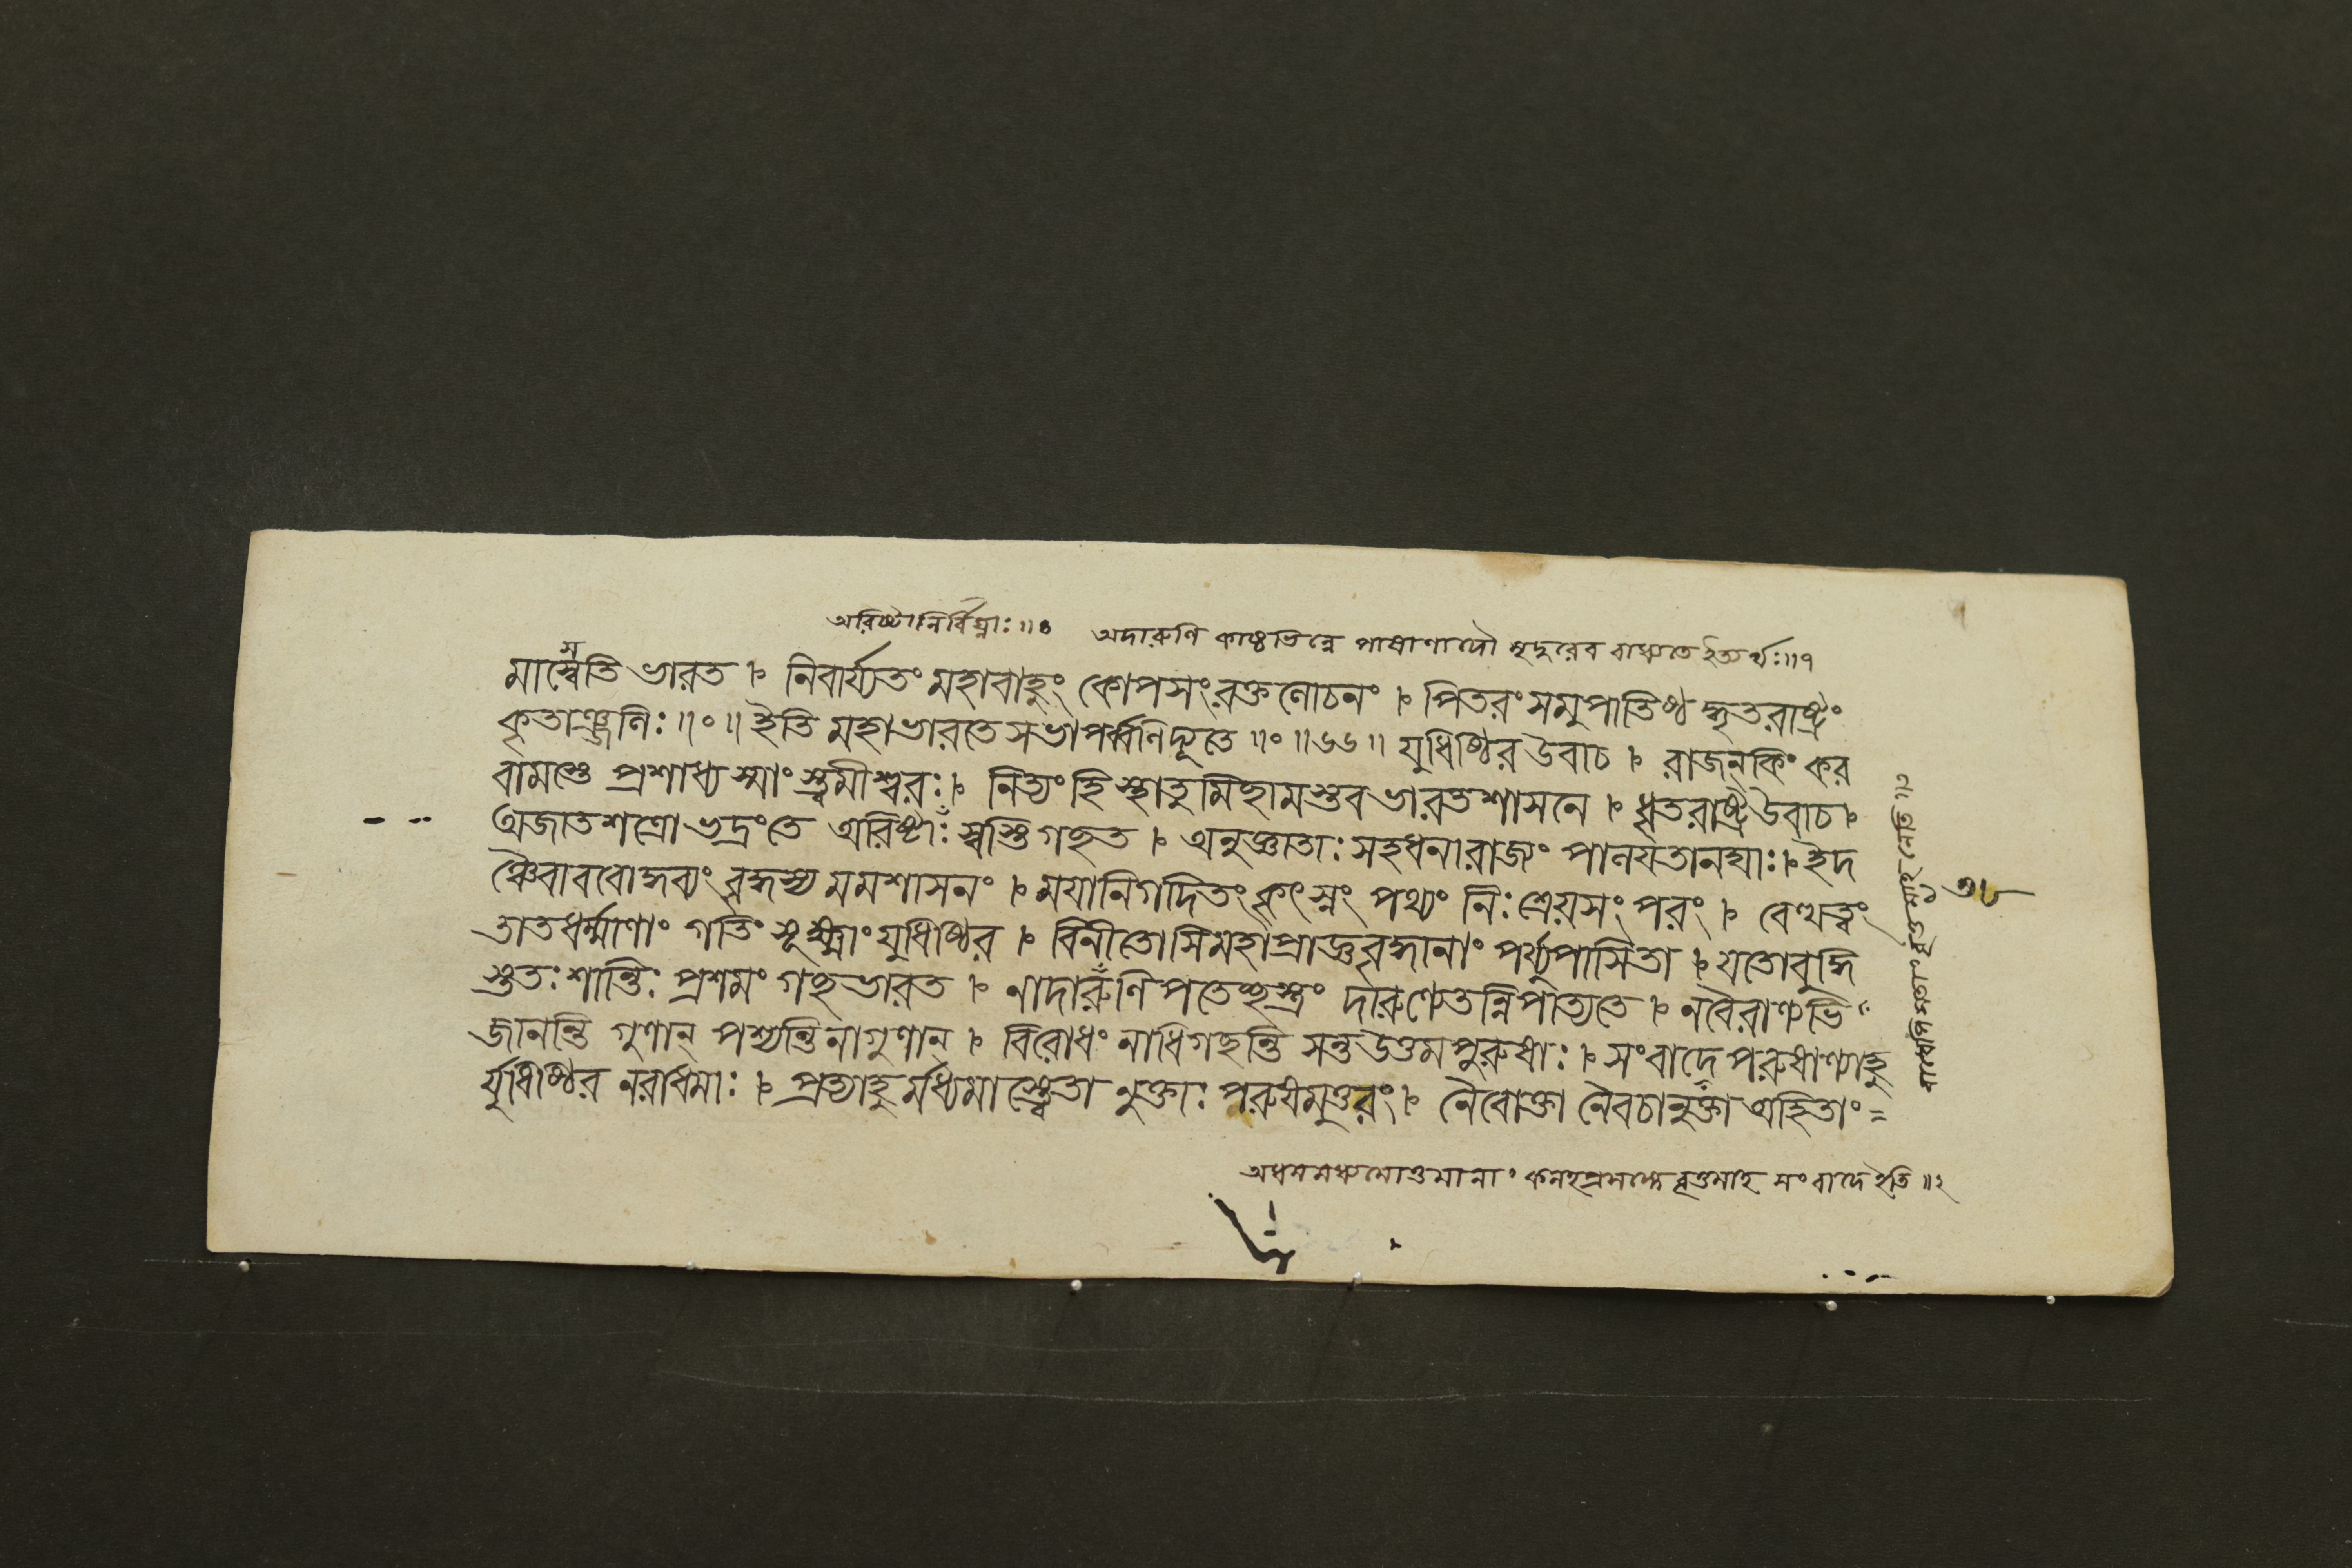 অরিষ্টা নির্বিঘ্নাঃ॥৪ অদারুণি কাষ্ঠভিন্নে পাষাণাদৌ ক্ষুদুরেব বাধ্যতে ইত্যর্থঃ॥৭
মাস্বৈতি ভারত । নিবার্য্যতং মহাবাহুং কোপসংরক্তলোচনং । পিতরং সমুপাতিষ্ঠদ্ধৃতরাষ্ট্রং
কৃতাঞ্জলিঃ ॥॰॥ ইতি মহাভারতে সভাপর্ব্বণি দ্যূতে ॥॰॥৬৬॥ যুধিষ্ঠির উবাচ । রাজন্ কিং কর
বামস্তে প্রশাধ্যস্মাংস্ত্বমীশ্বরঃ । নিত্যং হি স্থাতুমিচ্ছামস্তব ভারত শাসনে । ধৃতরাষ্ট্র উবাচ ।
অজাতশত্রো ভদ্রং তে অরিষ্টাঃ স্বস্তি গচ্ছত । অনুজ্ঞাতাঃ সহধনা রাজ্যং পালয়তানঘাঃ । ইদ
ঞ্চৈবাববোদ্ধব্যং বৃদ্ধস্য মম শাসনং । ময়া নিগদিতং কৃৎস্নং পথ্যং নিঃশ্রেয়সং পরং । বেত্থ ত্বং
তাত ধর্ম্মাণাং গতিং সূক্ষ্মাং যুধিষ্ঠির । বিনীতোসি মহাপ্রাজ্ঞ বৃদ্ধানাং পর্য্যুপাসিতা । যতো বুদ্ধি
স্ততঃ শান্তিঃ প্রশমং গচ্ছ ভারত । নাদারুণি পতেচ্ছস্ত্রং দারুণ্যেতন্নিপাত্যতে । ন বৈরাণ্যভি
জানন্তি গুণান্ পশ্যন্তি নাগুণান্ । বিরোধং নাধিগচ্ছন্তি সন্ত উত্তমপুরুষাঃ । সংবাদে পরুষাণ্যাহু
র্যুধিষ্ঠির নরাধমাঃ । প্রত্যাহুর্মধ্যমাস্ত্বেতা নুক্তাঃ পরুষমুত্তরং । নৈবোক্তা নৈবচানুক্তা অহিতাং
অধমমধ্যমোত্তমানাং কলহপ্রসঙ্গে বৃত্তমাহ সংবাদে ইতি॥২
৩৮